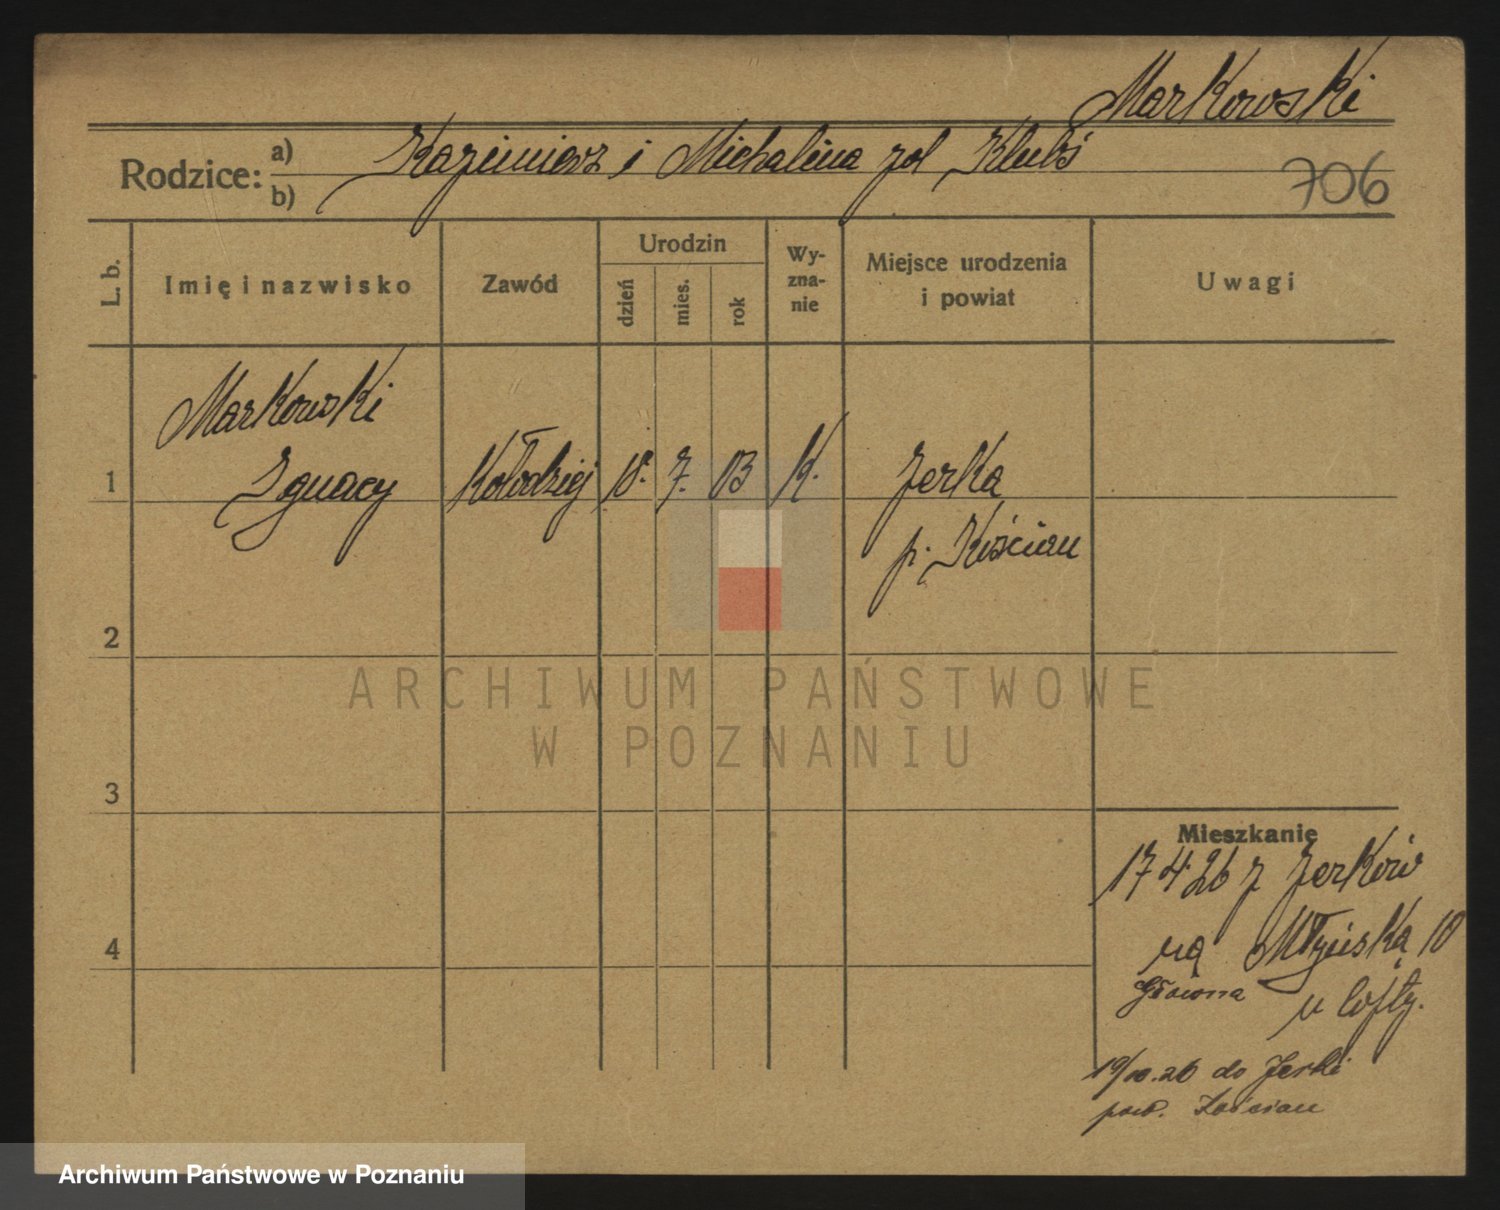 Markowski
Rodzice: a) Kazimierz i Michalina zd Klubś
b)
706
L. b.
Imię i nazwisko
Zawód
Urodzin
dzień
mies.
rok
Wy-
zna-
nie
Miejsce urodzenia
i powiat
Uwagi
Markowski
1 Ignacy Kołodziej 18. 7. 03 K. Jerka
p. Kościan
2
ARCHIWUM PAŃSTWOWE
W POZNANIU
3
Mieszkanie
17 4 26 z Jerków
4
na Młyńską 10
Główna u
19/10.26 do Jerki
pow. Kościan
Archiwum Państwowe w Poznaniu